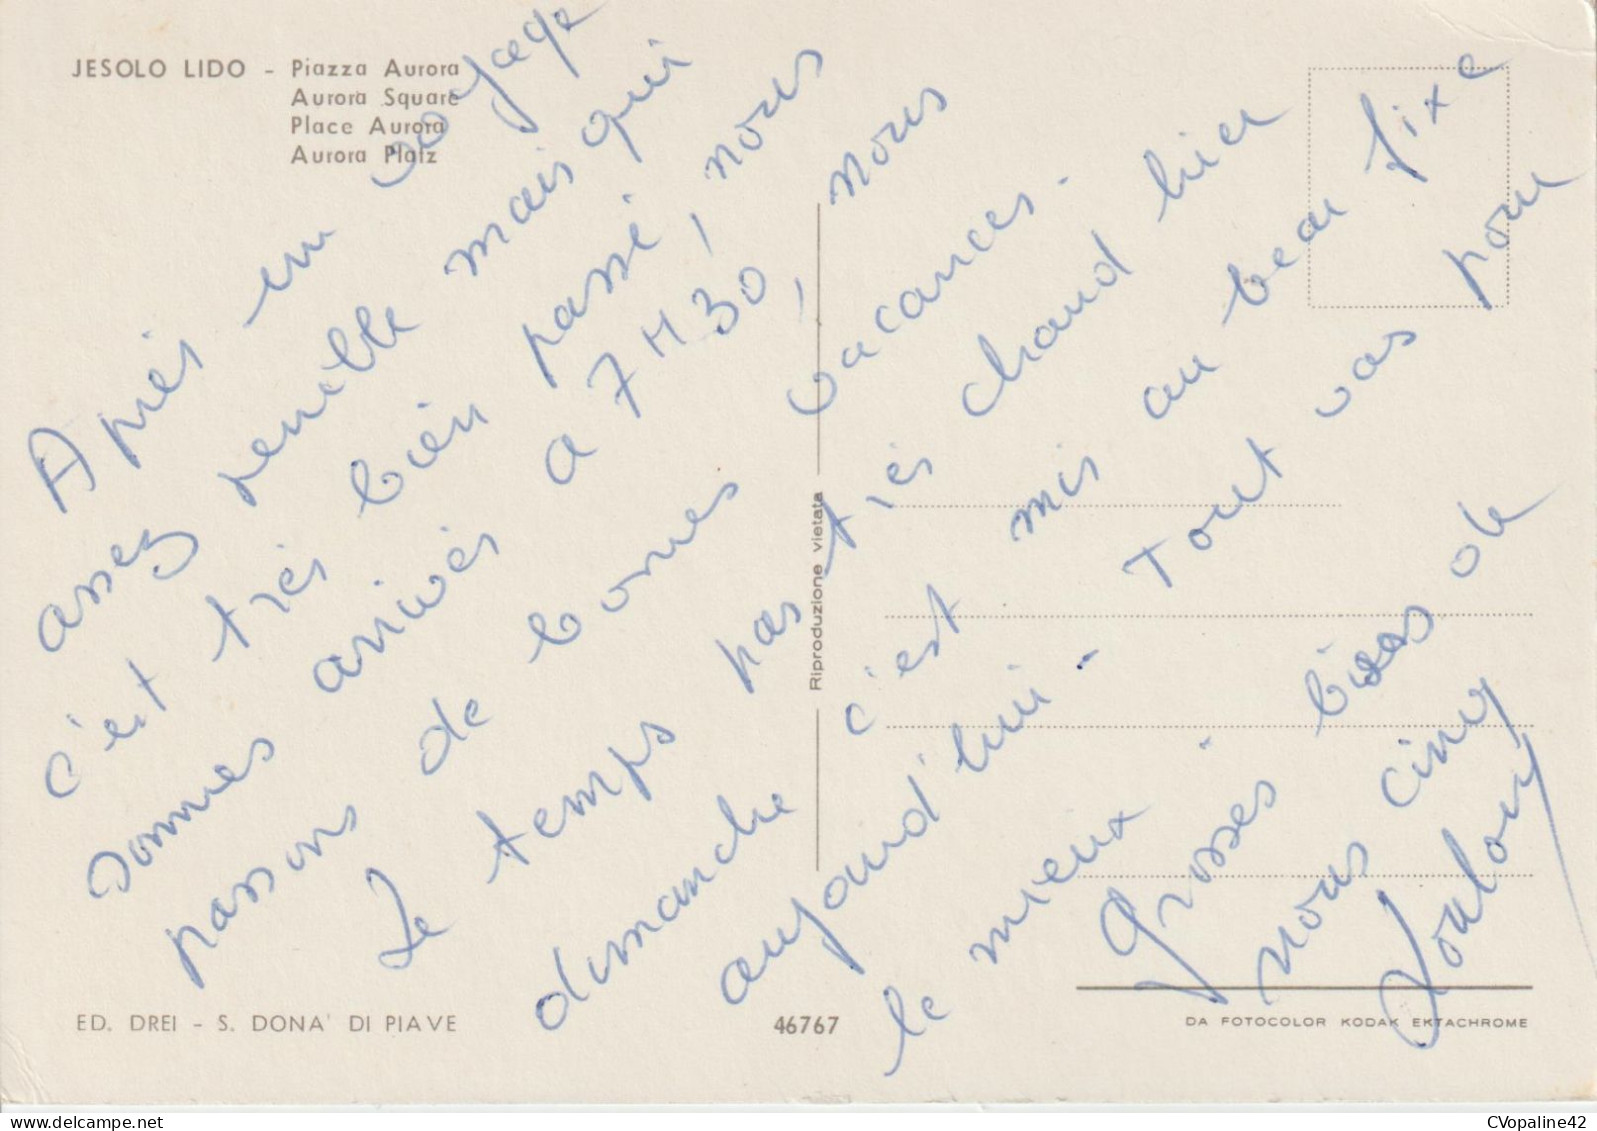 JESOLO LIDO - Piazza Aurora
Aurora Square
Place Aurora
Aurora Platz
Après un voyage
assez penible mais qui
c'est très bien passé, nous
sommes arrivés a 7H30, nous
passons de bonnes vacances.
Le temps pas très chaud hier
dimanche c'est mis au beau fixe
aujourd'hui - Tout vas pour
le mieux.
Grosses bises de
nous cinq
Riproduzione vietata
ED. DREI - S. DONA' DI PIAVE
46767
DA FOTOCOLOR KODAK EKTACHROME
CVopaline42